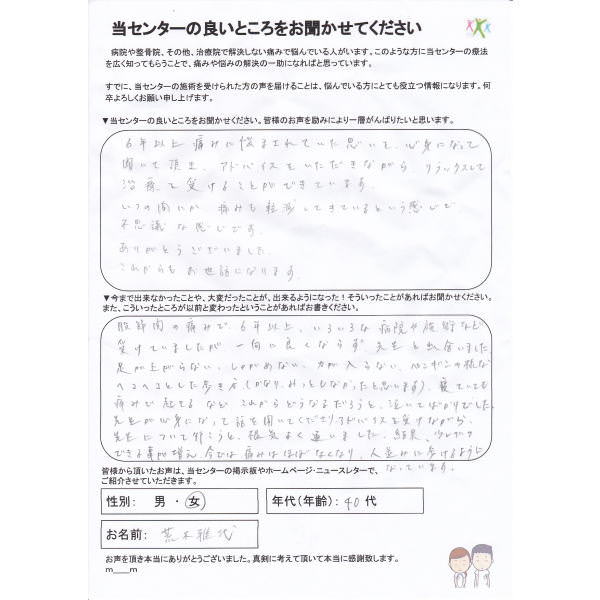 当センターの良いところをお聞かせてください
病院や整骨院、その他、治療院で解決しない痛みで悩んでいる人がいます。このような方に当センターの療法
を広く知ってもらうことで、痛みや悩みの解決の一助になればと思っています。
すでに、当センターの施術を受けられた方の声を届けることは、悩んでいる方にとても役立つ情報になります。何
卒よろしくお願い申し上げます。
▼当センターの良いところをお聞かせください。皆様のお声を励みにより一層がんばりたいと思います。
6年以上痛みに悩まされていた思いを、心身になって
聞いて頂き、アドバイスをいただきながら、リラックスして
治療を受けることができています。
いつの間にか、痛みも軽減してきているという感じで
不思議な感じです。
ありがとうございました。
これからもお世話になります。
▼今まで出来なかったことや、大変だったことが、出来るようになった！そういったことがあればお聞かせください。
また、こういったところが以前と変わったということがあればお書きください。
股関節の痛みで、6年以上、いろいろな病院や施術など
受けていましたが、一向に良くならず、先生と出会いました
足が上がらない、しゃがめない、力が入らない、ペンギンの様な
ヘコヘコとした歩き方（かなり、みっともなかったと思います）、寝ていても
痛みで起きるなど、これからどうなるだろうと、泣いてばかりでした。
先生が心身になって話を聞いてくださり、アドバイスを受けながら、
先生について行こうと、根気よく通いました。結果、少しずつ
できる事が増え、今では痛みはほぼなくなり、人並みに歩けるように
なっています。
皆様から頂いたお声は、当センターの掲示板やホームページ・ニュースレターで、
ご紹介させていただきます。
性別： 男 ・ 女
年代（年齢）： 40 代
お名前： 荒木雅代
お声を頂き本当にありがとうございました。真剣に考えて頂いて本当に感謝致します。
m___m